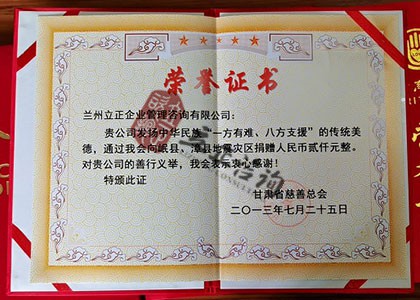 荣誉证书
兰州立正企业管理咨询有限公司：
贵公司发扬中华民族“一方有难、八方支援”的传统美
德，通过我会向岷县、漳县地震灾区捐赠人民币贰仟元整。
对贵公司的善行义举，我会表示衷心感谢！
特颁此证
甘肃省慈善总会
二〇一三年七月二十五日